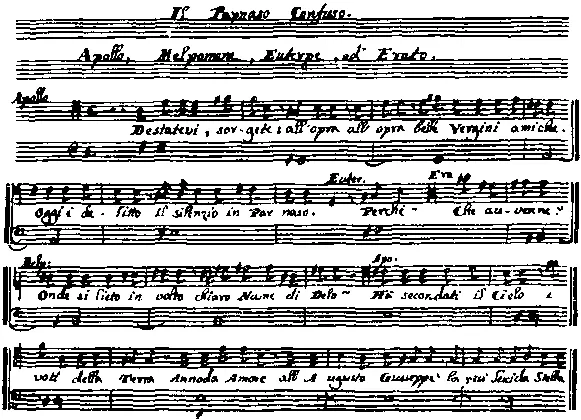 Il Parnaso Confuso.
Apollo, Melpomene, Euterpe, ed Erato.
Apollo
Destatevi, sorgete: all' opra all' opra belle Vergini amiche.
Euter. Era
Oggi è de- litto il silenzio in Par naso. Perchè Che av- venne?
Melp: Apo.
Onde si lieto in volto chiaro Nume di Delo Ha secondati il Cielo i
voti della Terra Annoda Amore all A ugusto Giuseppe la più Stella